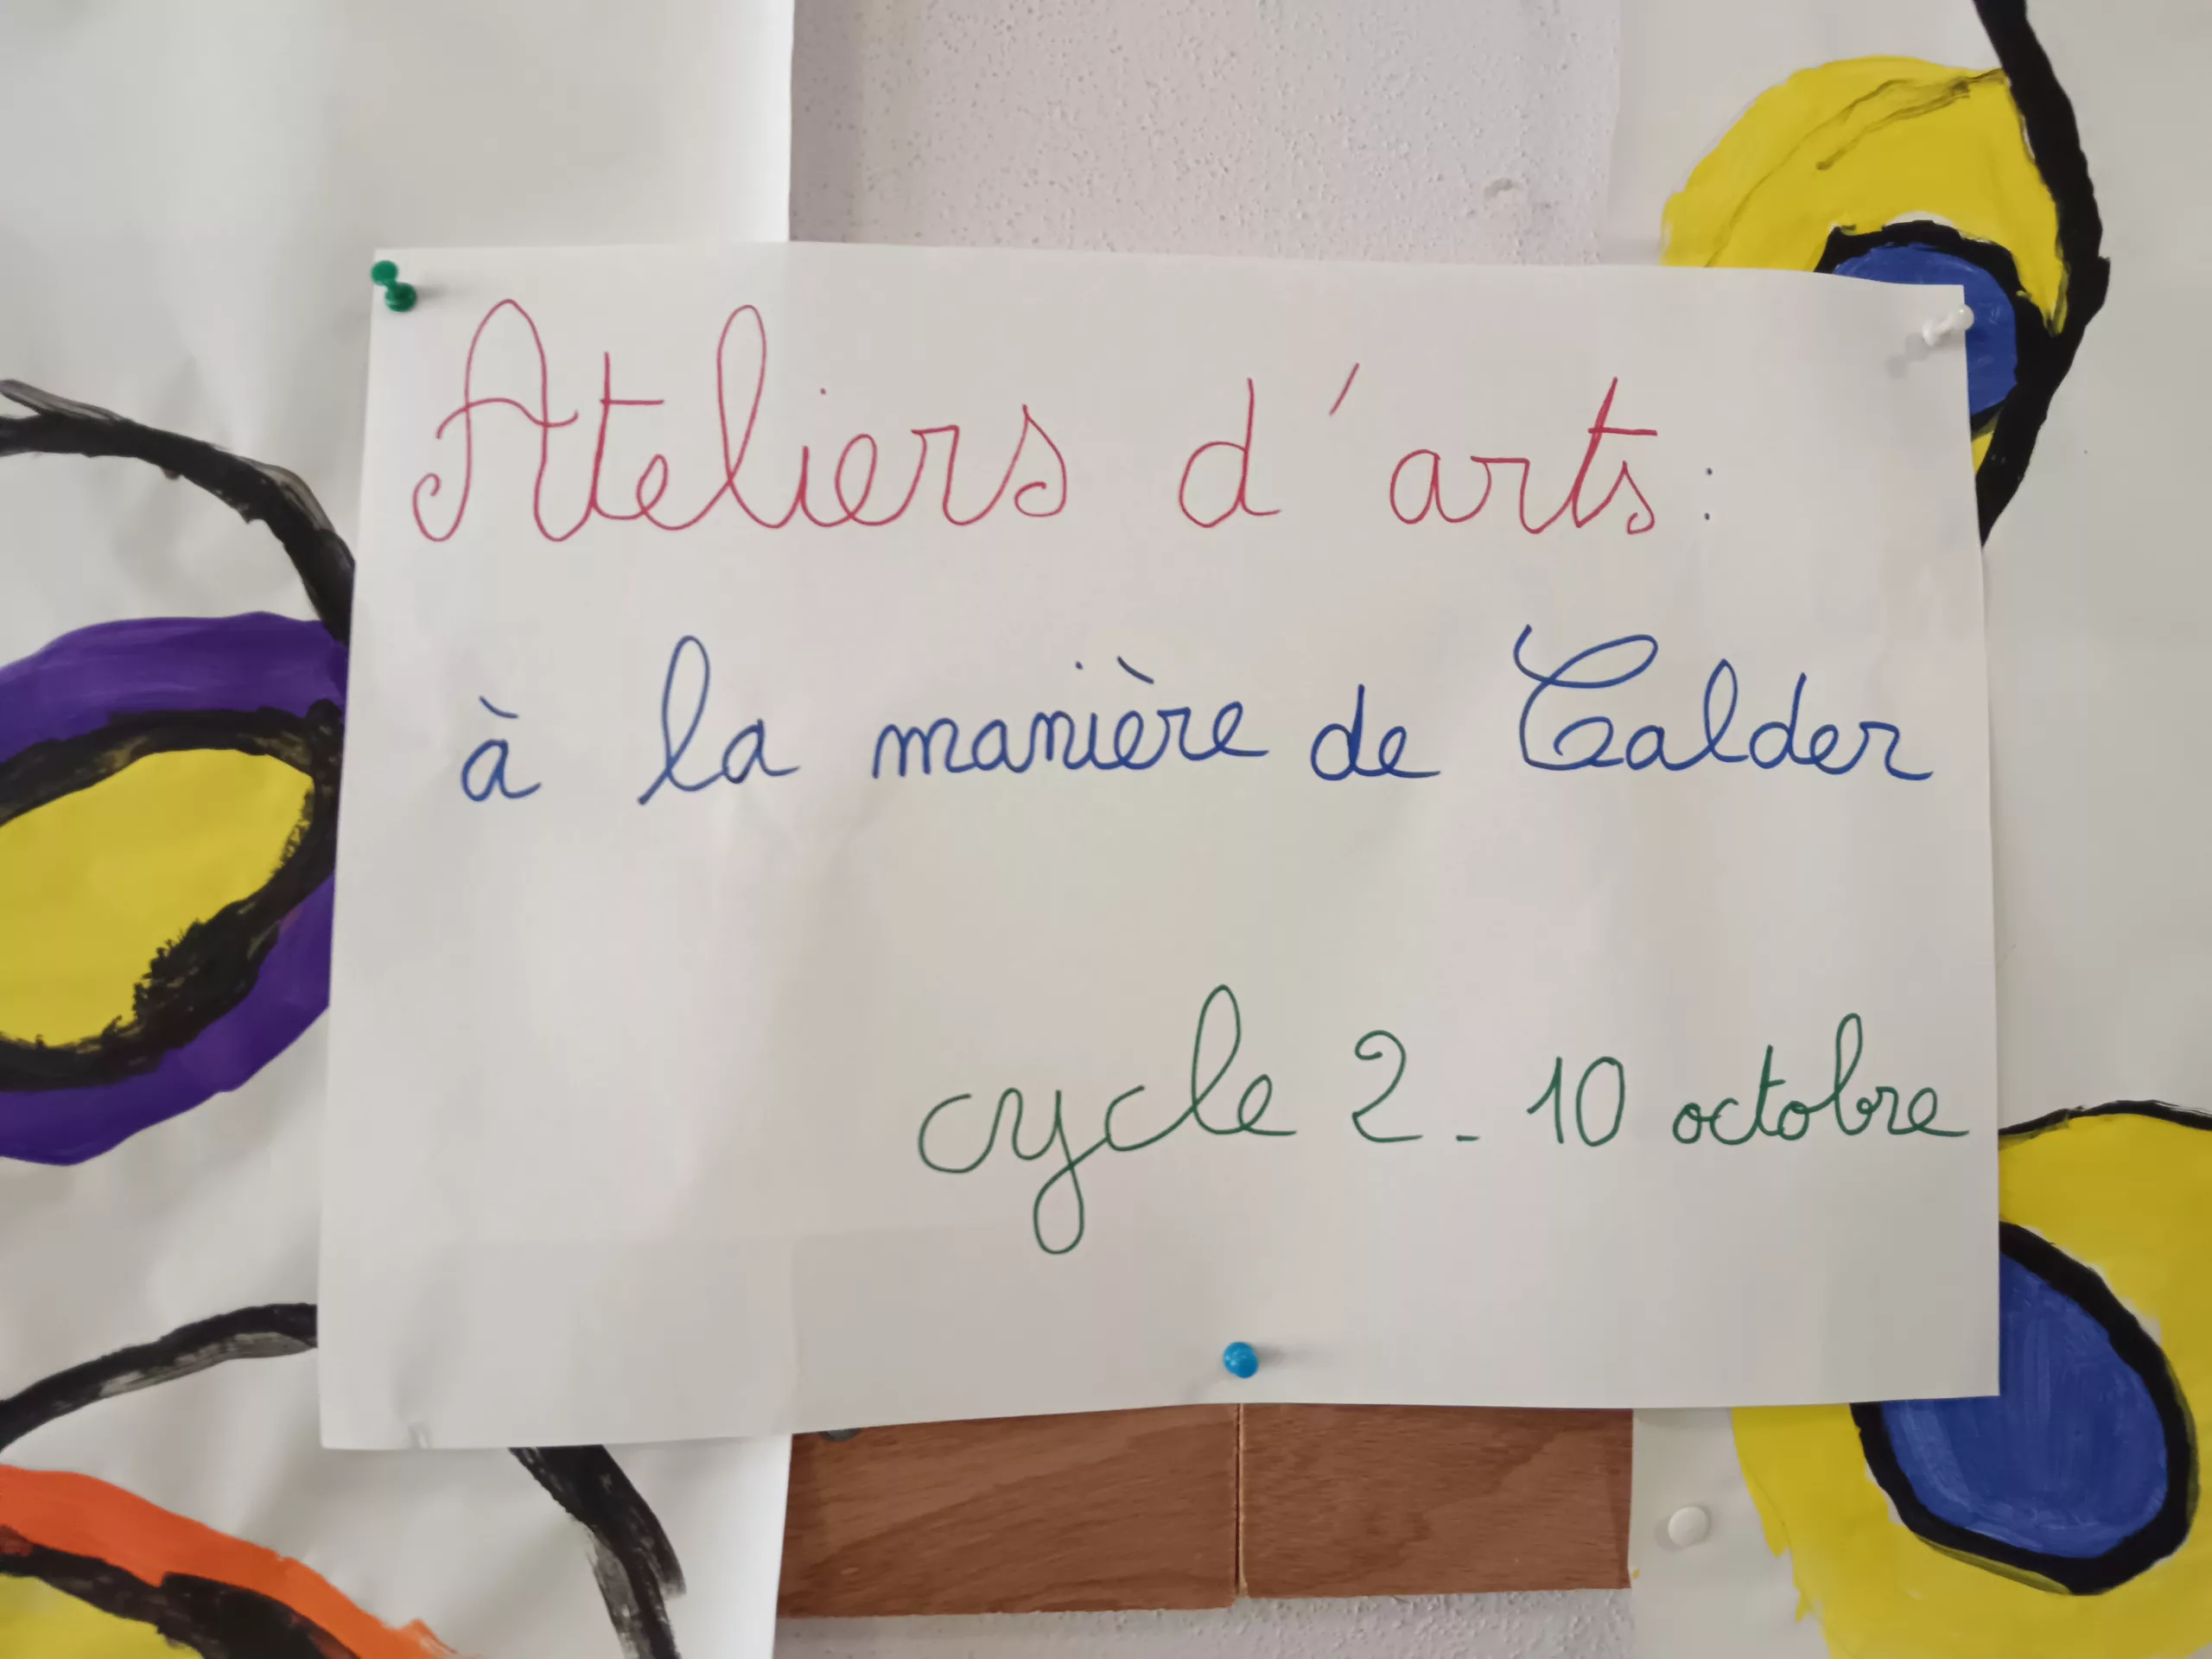 Ateliers d'arts :
à la manière de Calder
cycle 2 - 10 octobre